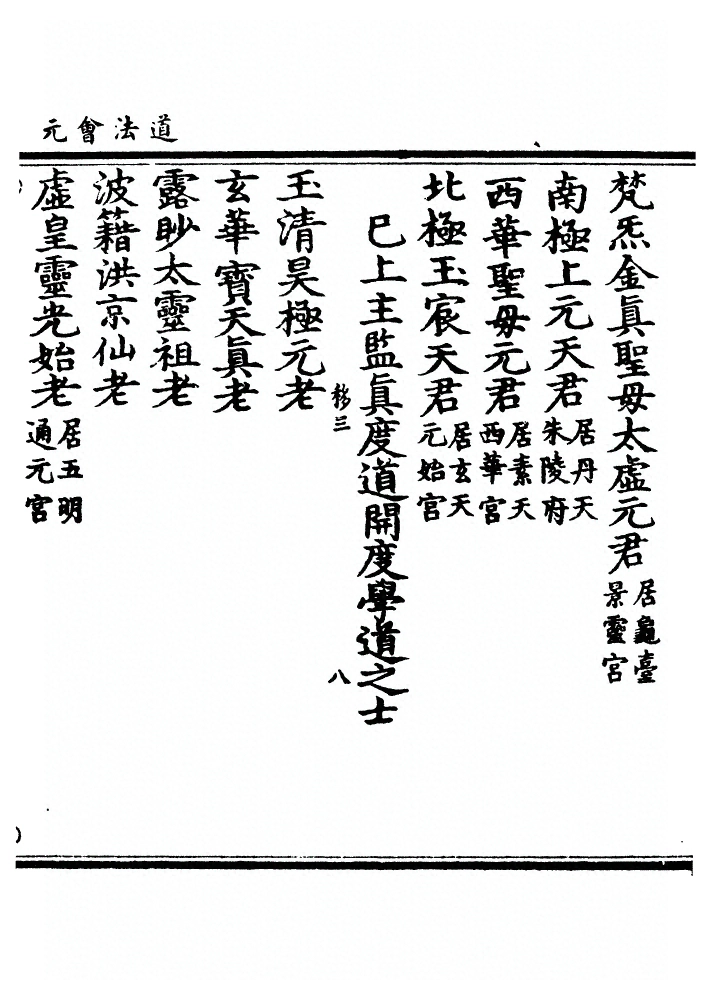 道法會元
梵炁金眞聖母太虛元君居龜臺景靈宮
南極上元天君居丹天朱陵府
西華聖母元君居素天西華宮
北極玉宸天君居玄天元始宮
巳上主監眞度道開度學道之士
移三
八
玉清昊極元老
玄華寶天眞老
露眇太靈祖老
波籍洪京仙老
虛皇靈光始老居五明通元宮